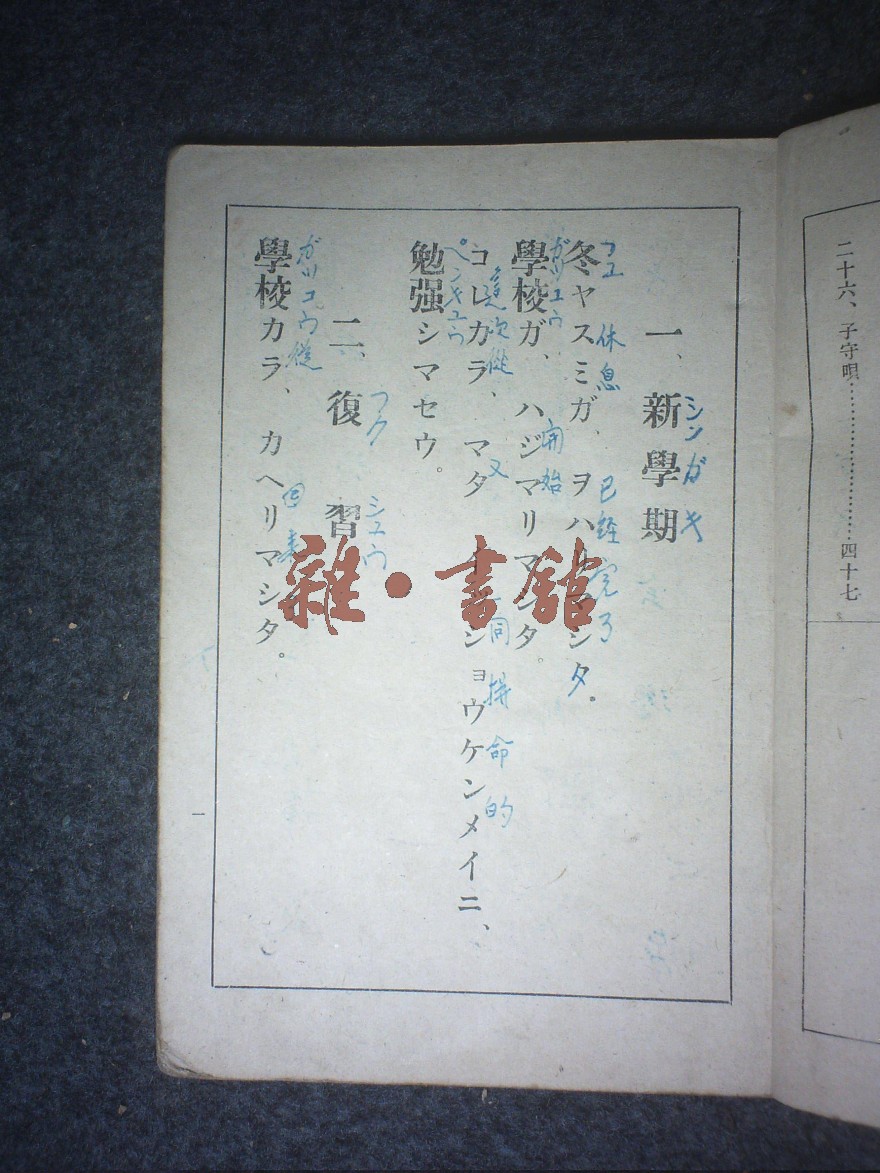 二十六、子守唄……………………四十七
一、新學期
シンガキ
冬ヤスミガ、ヲハリマシタ。
フユ 休息 已經完了
學校ガ、ハジマリマシタ。
ガツコウ 開始
コレカラ、マタ イッショウケンメイニ、
這次從 又 一同拼命的
勉强シマセウ。
ペンキユウ
二、復習
フク シユウ
學校カラ、カヘリマシタ。
ガツコウ 從 回來
一
雜·書舘